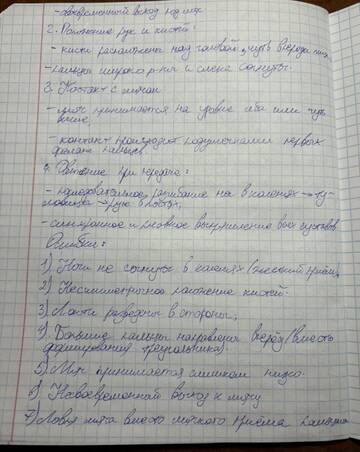 - своевременный выход под мяч
2. Положение рук и кистей:
- кисти расположены над головой, чуть впереди лица
- пальцы широко р-ны и слегка согнуты.
3. Контакт с мячом
- мяч принимается на уровне лба или чуть
выше
- контакт происходит подушечками первых
фаланг пальцев.
4. Движение при передаче:
- последовательное разгибание ног в коленях →
рук в локтях,
- синхронное и плавное выпрямление всех суставов
Ошибки:
1) Ноги не согнуты в коленях (жесткий приём)
2) Несимметричное положение кистей.
3) Локти разведены в стороны;
4) Большие пальцы направлены вперёд (вместо
формирования треугольника)
5) Мяч принимается слишком низко.
6) Несвоевременный выход к мячу
7) Ловля мяча вместо мягкого приёма пальцами